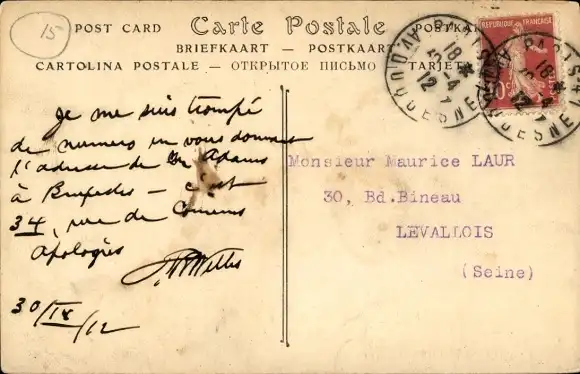 15
POST CARD Carte Postale POSTKARTE
BRIEFKAART — POSTKAART
CARTOLINA POSTALE — ОТКРЫТОЕ ПИСЬМО — TARJETA
REPUBLIQUE FRANÇAISE
10c
PARIS
18
4
12
AV. DUQUESNE
Je me suis trompé
de numero en vous donnant
l'adresse de Adams
à Bruxelles — c'est
34, rue de
Apologies
Willis
30/IV/12
Monsieur Maurice LAUR
30, Bd.Bineau
LEVALLOIS
(Seine)